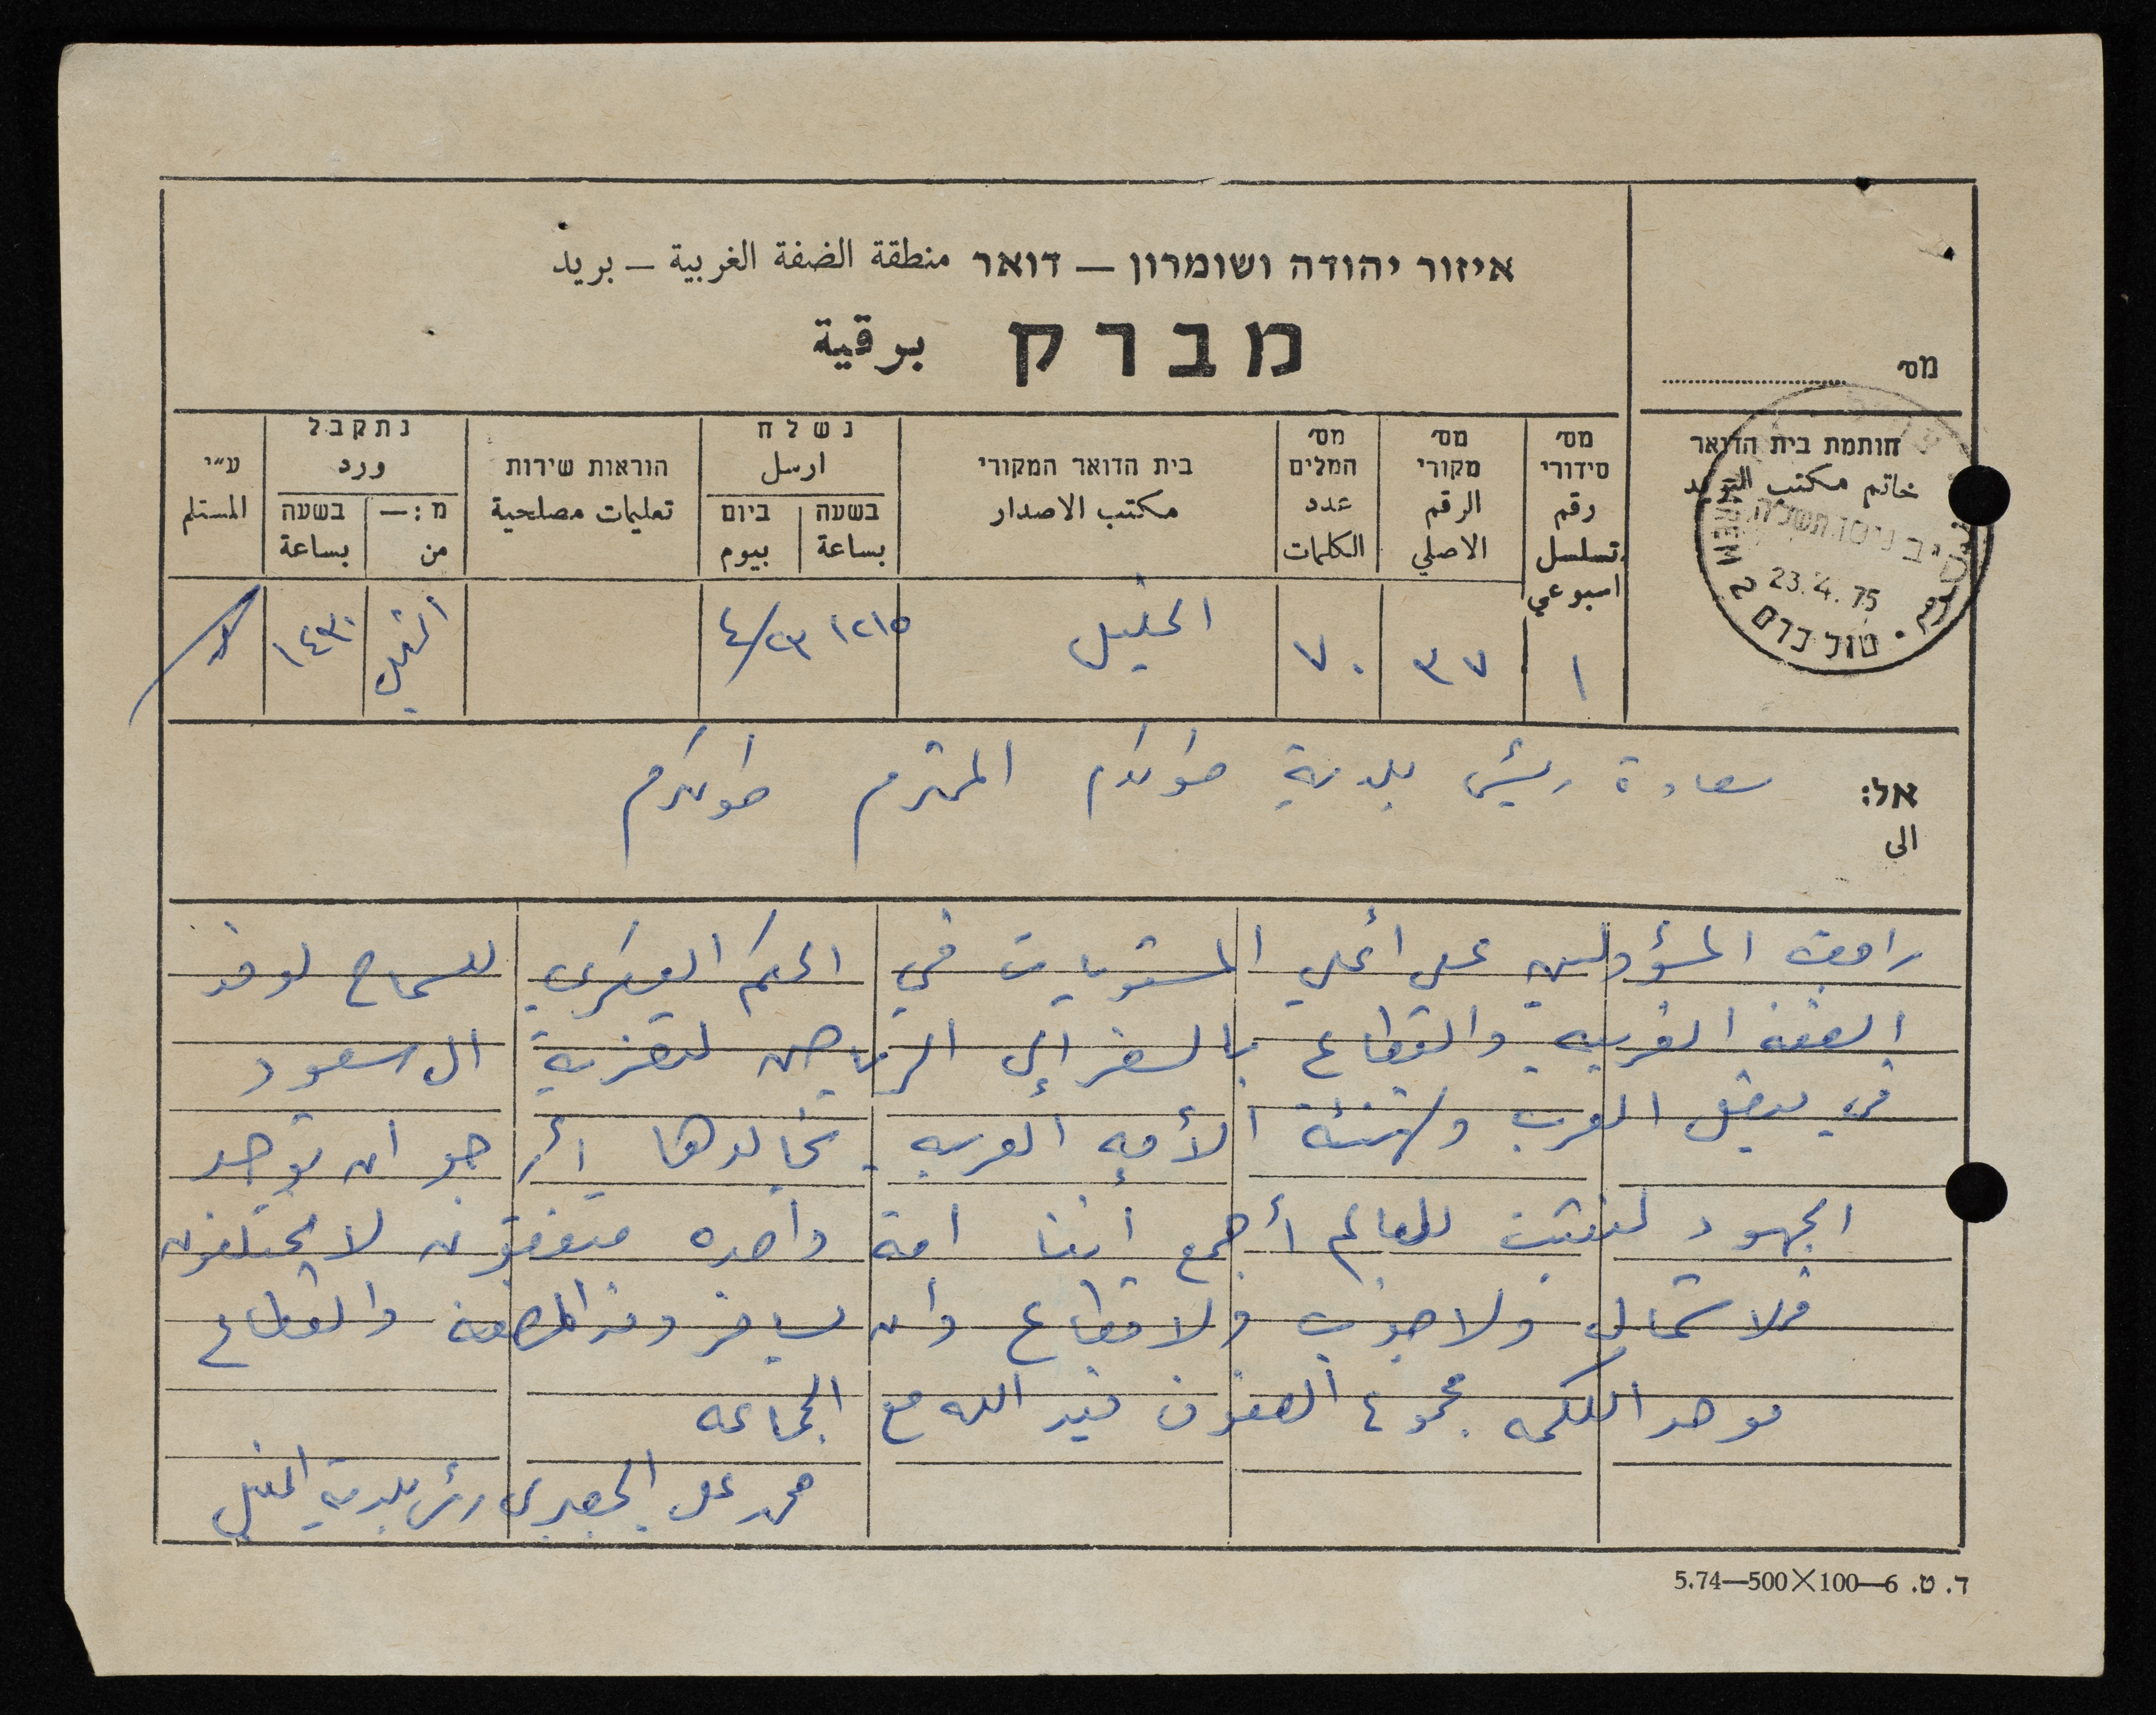 איזור יהודה ושומרון – דואר منطقة الضفة الغربية – بريد
מברק برقية
מס׳
חותמת בית הדואר
خاتم مكتب البريد
23.4.75
טול כרם 2
מס׳ סידורי رقم تسلسل اسبوعي
מס׳ מקורי الرقم الاصلي
מס׳ המלים عدد الكلمات
בית הדואר המקורי مكتب الاصدار
נשלח ارسل
בשעה بساعة
ביום بيوم
הוראות שירות تعليمات مصلحية
נתקבל ورد
מ:– من
בשעה بساعة
ע״י المستلم
١ ٣٧ ٧٠ الخليل ١٢١٥ ٤/٢٣ الخليل ١٤٣٠
אל: سعادة رئيس بلدية طولكرم المحترم طولكرم
الى
وافق المسؤولين على أعلى المستويات في الحكم العسكري للسماح لوفد
الضفة الغربيه والقطاع بالسفر إلى الرياض لتعزية ال سعود
في فيصل العرب وتهنئة الأمه العربيه بخالدها أرجو ان توحد
الجهود لنثبت للعالم أجمع أننا امة واحده متفقون لا يختلفون
فلا شمال ولا جنوب ولا قطاع وان يسافر وفد الضفة والقطاع
موحد الكلمه مجموع الصفوف فيد الله مع الجماعه
محمد علي الجعبري رئيس بلدية الخليل
ד. ט. 6—100×500—5.74